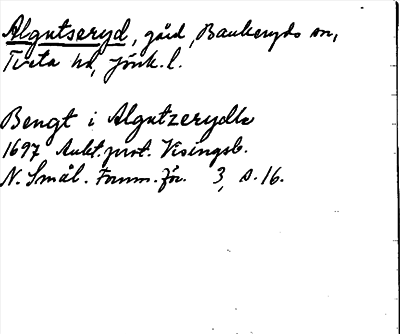 Algutseryd, gård, Bankeryds sn,
Tveta hd, Jönk. l.
Bengt i Algutzerydh
1697 Aukt. prot. Visingsb.
N. Smål. Fornm. för. 3, s. 16.